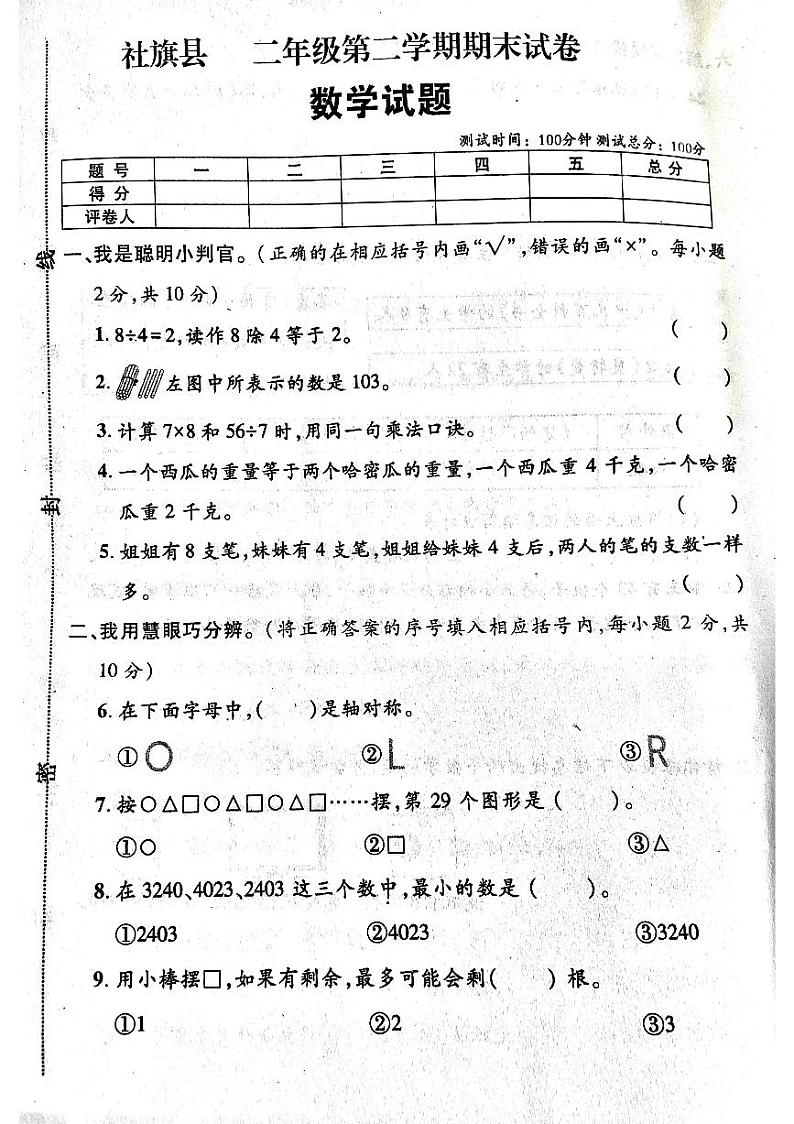 社旗县 二年级第二学期期末试卷
数学试题
测试时间：100分钟 测试总分：100分
题号 一 二 三 四 五 总分
得分
评卷人
线
封
密
一、我是聪明小判官。(正确的在相应括号内画“√”,错误的画“×”。每小题
2分,共10分)
1. 8÷4=2,读作8除4等于2。 ( )
2. 左图中所表示的数是103。 ( )
3. 计算7×8和56÷7时,用同一句乘法口诀。 ( )
4. 一个西瓜的重量等于两个哈密瓜的重量,一个西瓜重4千克,一个哈密
瓜重2千克。 ( )
5. 姐姐有8支笔,妹妹有4支笔,姐姐给妹妹4支后,两人的笔的支数一样
多。 ( )
二、我用慧眼巧分辨。(将正确答案的序号填入相应括号内,每小题2分,共
10分)
6. 在下面字母中,( )是轴对称。
①O ②L ③R
7. 按○△□○△□○△□……摆,第29个图形是( )。
①○ ②□ ③△
8. 在3240、4023、2403这三个数中,最小的数是( )。
①2403 ②4023 ③3240
9. 用小棒摆□,如果有剩余,最多可能会剩( )根。
①1 ②2 ③3